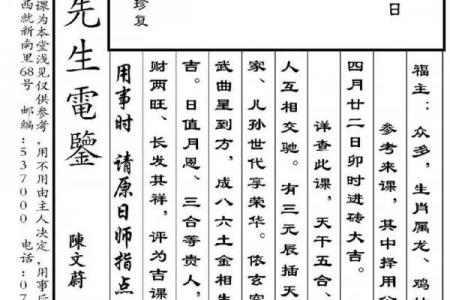 日
珍复
福主：众多，生肖属龙、鸡
参考来课，其中择用
四月廿二日卯时进砖大吉。
详查此课，天干五合
人互相交驰。有三元辰插天
家、儿孙世代享荣华。依玄
武曲星到方，成八六土金相
吉。日值月恩、三合等贵人，
财两旺、长发其祥，评为吉课
用事时 请原日师指点
先生電鑒
陳文蔚
课为本堂浅见仅供参考，用不用由主人决定，用事后
西就新南里68号 邮编:537000 电话:07